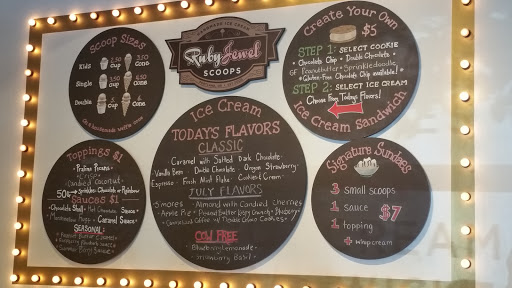 Scoop Sizes
Kids
cup
Cone
Single
cup
Cone
Double
Cup
Cone
HANDMADE ICE CREAM
Ruby Jewel
SCOOPS
Create Your Own
$5
STEP 1: SELECT COOKIE
• Chocolate Chip • Double Chocolate •
GF Peanutbutter • Sprinkledoodle
• Gluten-Free Chocolate Chip available!
STEP 2: SELECT ICE CREAM
Choose From Todays Flavors!
Ice Cream Sandwich
Toppings $1
Praline Pecans
Candied Coconut
50¢ Sprinkles-Chocolate or Rainbow
Sauces $1
Chocolate Shell • Hot Chocolate Sauce •
Marshmallow • Caramel Sauce •
SEASONAL:
Ice Cream
TODAYS FLAVORS
CLASSIC
Caramel with Salted Dark Chocolate
Vanilla Bean Double Chocolate Oregon Strawberry
Espresso Fresh Mint Flake Cookies & Cream
JULY FLAVORS
S'mores Almond with Candied Cherries
COW FREE
Blueberry Lemonade
Strawberry Basil
Signature Sundaes
3 small scoops
1 sauce
$7
1 topping
+ whip cream